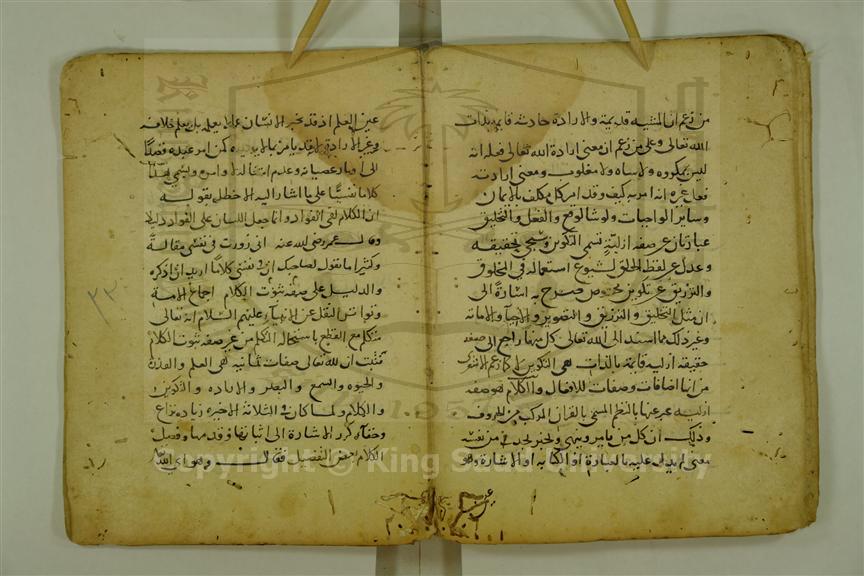 من زعم ان المشية قديمة والارادة حادثة قايمة بذات
الله تعالى وعلى من زعم ان معنى ارادة الله تعالى فعله انه
ليس بمكره ولا ساه ولا مغلوب ومعنى ارادته
فعل غيره انه امر به كيف وقد امر كل مكلف بالايمان
وساير الواجبات ولو شا لوقع والفعل والتخليق
عبارتان عن صفة ازلية تسمى التكوين وسيجي تحقيقه
وعدل عن لفظ الخلق لشيوع استعماله في المخلوق
والترزيق هو تكوين مخصوص صرح به اشارة الى
ان مثل التخليق والترزيق والتصوير والاحيا والاماتة
وغير ذلك مما اسند الى الله تعالى كل منها راجع الى صفة
حقيقة ازلية قايمة بالذات هي التكوين لا كما زعم الاشعرى
من انها اضافات وصفات للافعال والكلام هو صفة
ازلية عبر عنها بالنظم المسمى بالقران المركب من الحروف
وذلك ان كل من يامر وينهى ويخبر يجد من نفسه
معنى ثم يدل عليه بالعبارة او الكتابة او الاشارة وهو
غير
عين العلم اذ قد يخبر الانسان عما لا يعلمه بل يعلم خلافه
وغير الارادة لانه قد يامر بما لا يريده كمن امر عبده قصدا
الى اظهار عصيانه وعدم امتثاله لاوامره ويسمى هذا
كلاما نفسيا على ما اشار اليه الاخطل بقوله
ان الكلام لفى الفواد وانما جعل اللسان على الفواد دليلا
وقال عمر رضى الله عنه انى زورت في نفسى مقالة
وكثيرا ما تقول لصاحبك ان في نفسى كلاما اريد ان اذكره
والدليل على صفة ثبوت الكلام اجماع الامة
وتواتر النقل عن الانبيا عليهم السلام انه تعالى
متكلم مع القطع باستحالة التكلم من غير صفة ثبوت الكلام
فثبت ان لله تعالى صفات ثمانية هي العلم والقدرة
والحيوة والسمع والبصر والارادة والتكوين
والكلام ولما كان في الثلاثة الاخيرة زيادة نزاع
وخفاء كرر الاشارة الى اثباتها وقدمها وفصل
الكلام بعض التفصيل فقال وهو اى الله
٢٣
Copyright © King Saud University